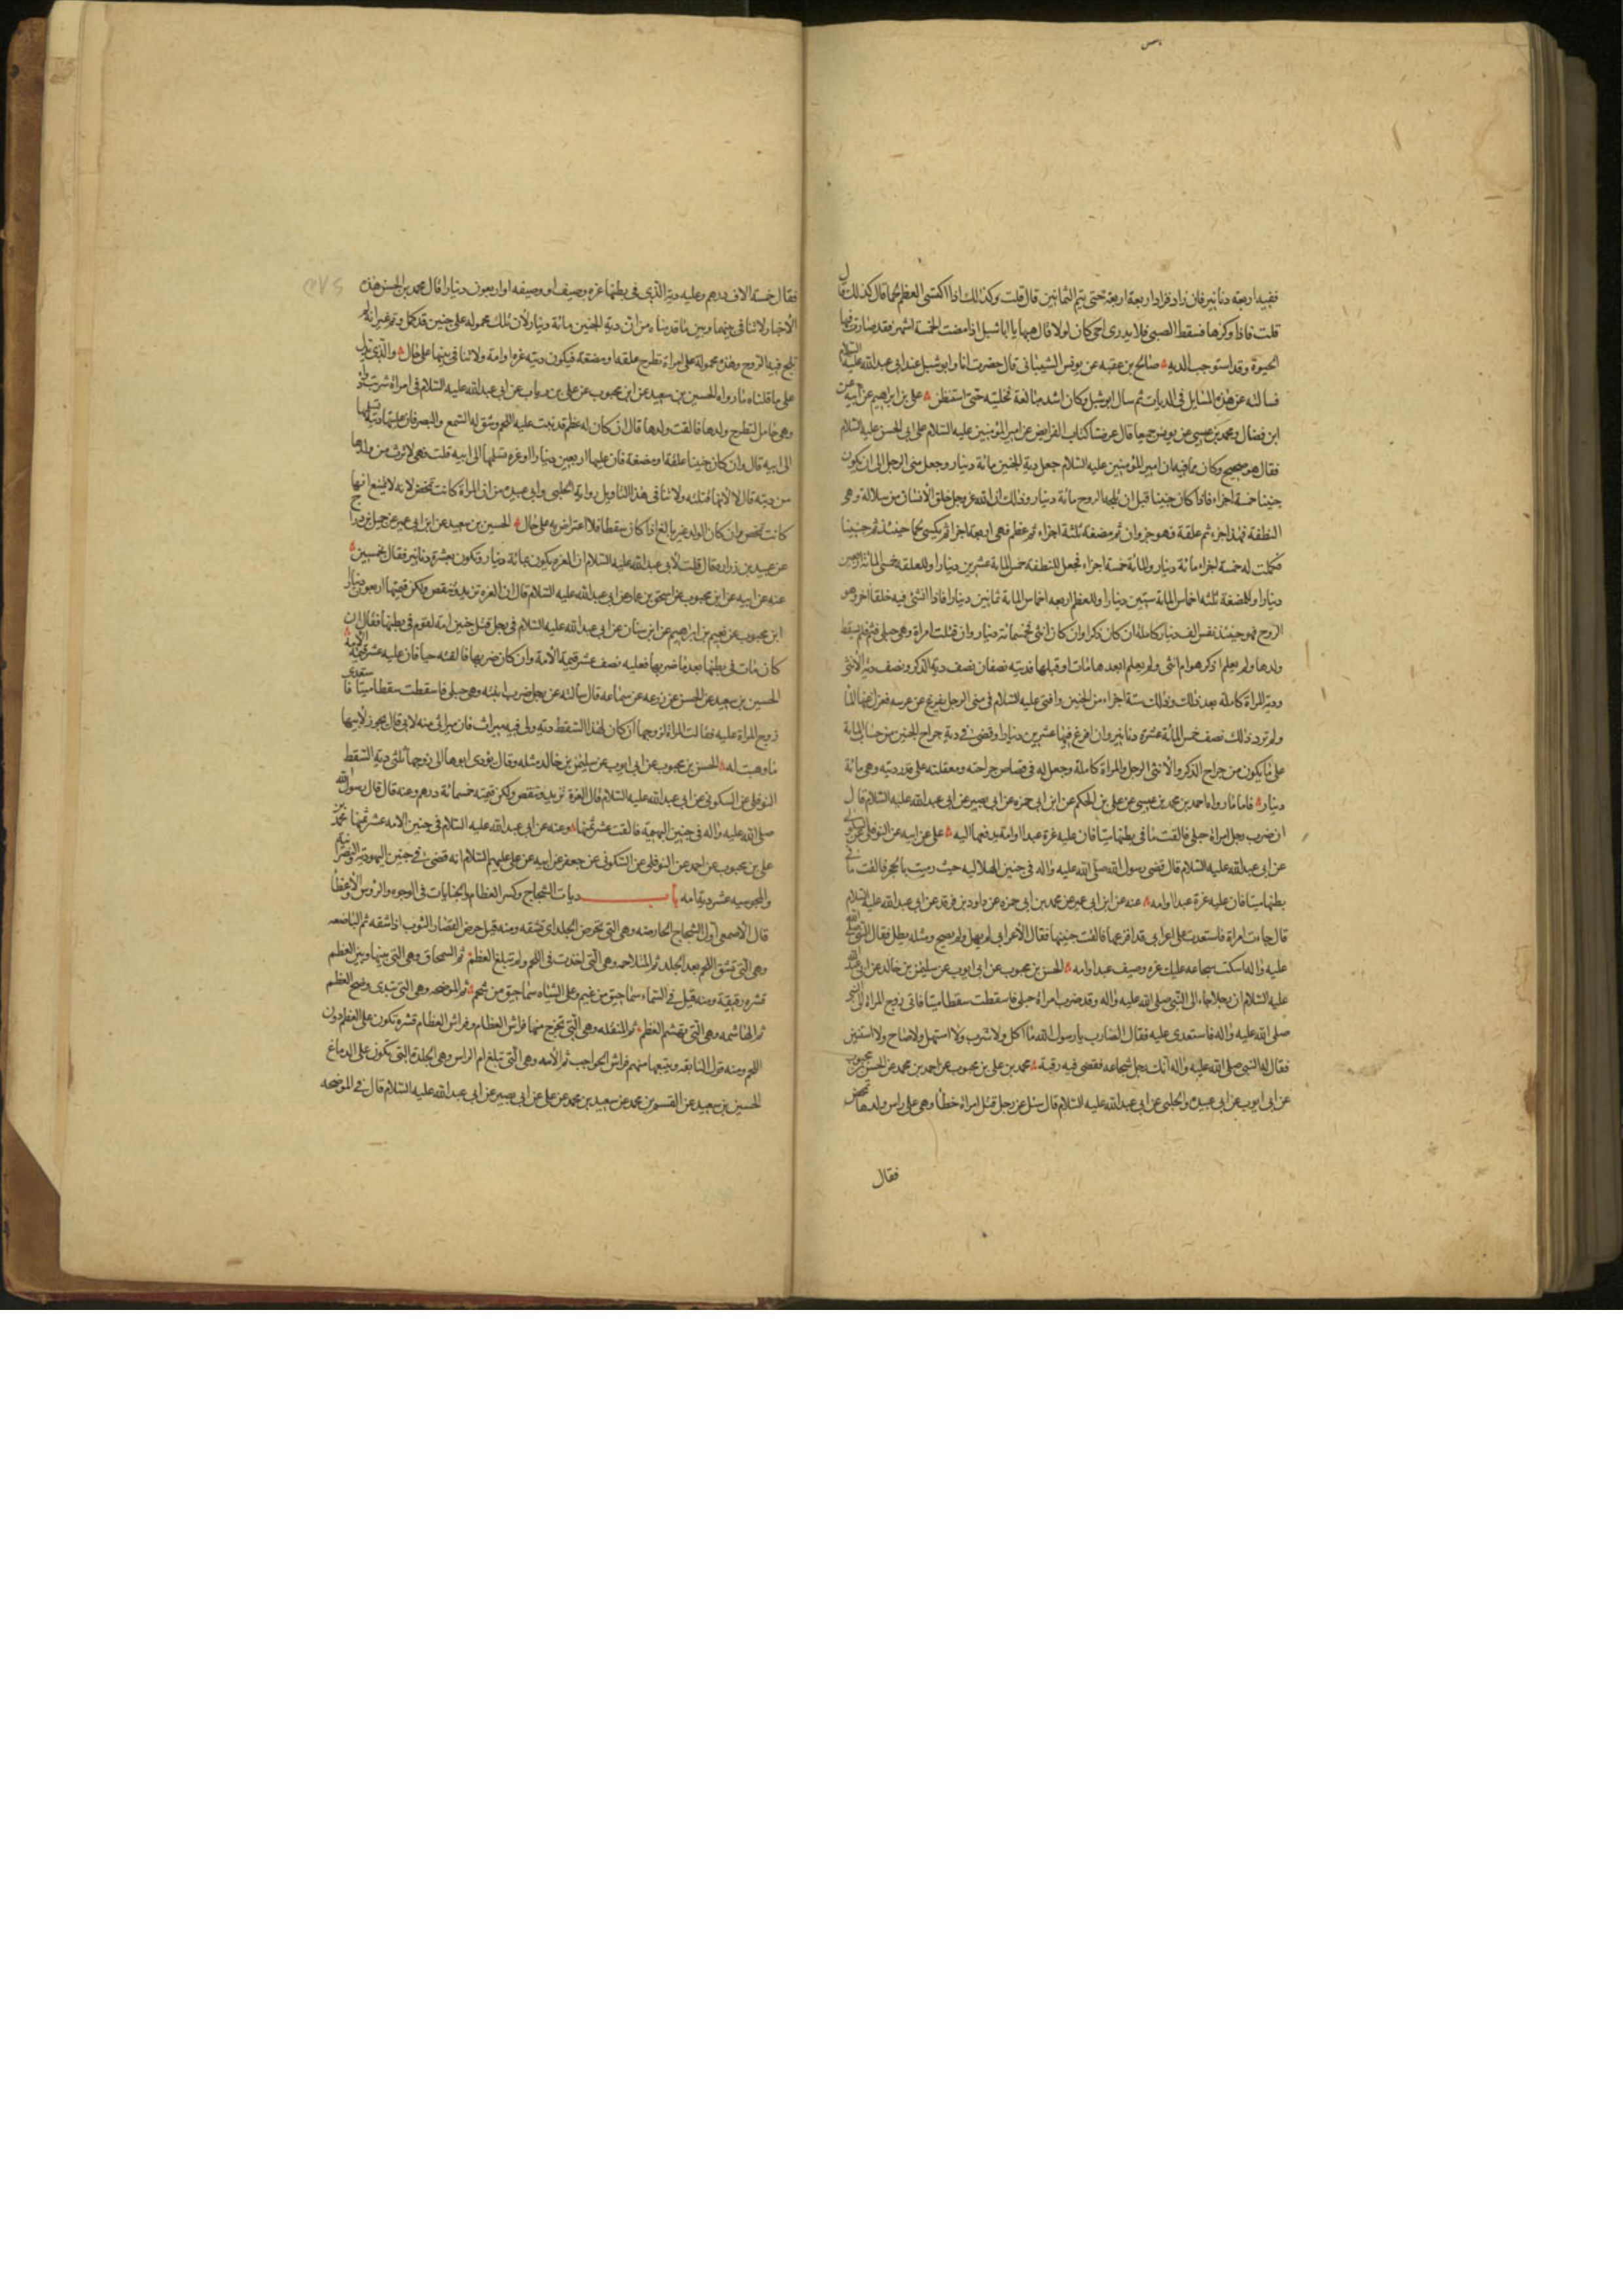 ففيه اربعة دنانير فان زاد فزاد اربعة اربعة حتى يتم الثمانين قال قلت وكذلك اذا اكتسى العظم لحما قال كذلك قال
قلت فاذا وكزها فسقط الصبي فلا يدرى احي كان اولا قال هيهات يا ابا شبل اذا مضت الخمسة اشهر فقد صارت فيها
الحيوة وقد استوجب الدية صالح بن عقبه عن يونس الشيباني قال حضرت انا وابو شبل عند ابي عبد الله عليه السلام
فسالته عن هذه المسايل في الديات ثم سال ابو شبل وكان اشد مبالغة فخليته حتى استنظف علي بن ابراهيم عن ابيه عن
ابن فضال ومحمد بن عيسى عن يونس جميعا قال عرضنا كتاب الفرايض عن امير المؤمنين عليه السلام على ابي الحسن عليه السلام
فقال هو صحيح وكان مما فيه ان امير المؤمنين عليه السلام جعل دية الجنين مائة دينار وجعل مني الرجل الى ان يكون
جنينا خمسة اجزاء فاذا كان جنينا قبل ان تلجه الروح مائة دينار وذلك ان الله عز وجل خلق الانسان من سلالة وهو
النطفة فهذا جزء ثم علقة فهو جزوان ثم مضغة ثلثة اجزاء ثم عظم فهي اربعة اجزا ثم يكسى لحما حينئذ تم جنينا
فكملت له خمسة اجزاء مائة دينار والمائة خمسة اجزاء فجعل للنطفة خمس المائة عشرين دينارا وللعلقة خمسي المائة اربعين
دينارا وللمضغة ثلثة اخماس المائة ستين دينارا وللعظم اربعة اخماس المائة ثمانين دينارا فاذا انشئ فيه خلقا اخر وهو
الروح فهو حينئذ نفس الف دينار كاملة ان كان ذكرا وان كان انثى فخمسمائة دينار وان قتلت امراة وهي حبلى فتم فلم يسقط
ولدها ولم يعلم اذكر هو ام انثى ولم يعلم ابعدها مات او قبلها فديته نصفان نصف دية الذكر ونصف دية الانثى
ودية المراة كاملة بعد ذلك وذلك ستة اجزاء من الجنين وافتى عليه السلام في مني الرجل يفرغ عن عرسه فعزل عنها الماء
ولم ترد ذلك نصف خمس المائة عشرة دنانير وان افرغ فيها عشرين دينارا وقضى في دية جراح الجنين من حساب المائة
على ما يكون من جراح الذكر والانثى الرجل والمراة كاملة وجعل له في قصاص جراحته ومعقلته على قدر ديته وهي مائة
دينار فاما ما رواه احمد بن محمد بن عيسى عن علي بن الحكم عن ابن ابي حمزه عن ابي بصير عن ابي عبد الله عليه السلام قال
ان ضرب رجل امراة حبلى فالقت ما في بطنها ميتا فان عليه غرة عبدا او امة يدفعها اليه علي عن ابيه عن النوفلي عن السكوني
عن ابي عبد الله عليه السلام قال قضى رسول الله صلى الله عليه واله في جنين الهلاليه حيث رميت بالحجر فالقت ما في
بطنها ميتا فان عليه غرة عبدا او امه عنه عن ابن ابي عمير عن محمد بن ابي حمزه عن داود بن فرقد عن ابي عبد الله عليه السلام
قال جاءت امراة فاستعدت على اعرابي قد افزعها فالقت جنينها فقال الاعرابي لم يهل ولم يصح ومثله يطل فقال النبي صلى الله
عليه واله اسكت سجاعه عليك غره وصيف عبد او امه الحسن بن محبوب عن ابي ايوب عن سليمن بن خالد عن ابي عبد الله
عليه السلام ان رجلا جاء الى النبي صلى الله عليه واله وقد ضرب امراة حبلى فاسقطت سقطا ميتا فاتى زوج المراة الى النبي
صلى الله عليه واله فاستعدى عليه فقال الضارب يا رسول الله ما اكل ولا شرب ولا استهل ولا صاح ولا استبشر
فقال له النبي صلى الله عليه واله انك رجل سجاعه فقضى فيه رقبة محمد بن علي بن محبوب عن احمد بن محمد عن الحسن بن محبوب
عن ابي ايوب عن ابي عبيدة والحلبي عن ابي عبد الله عليه السلام قال سئل عن رجل قتل امراة خطأ وهي على راس ولدها تمخض
فقال
فقال خمسة الاف درهم وعليه دية الذي في بطنها غره وصيف او وصيفه او اربعون دينارا قال محمد بن الحسن هذه
الاخبار لا تنافي بينها وبين ما قدمناه من ان دية الجنين مائة دينار لان تلك محمولة على جنين قد كمل وتم غير انه لم
تلج فيه الروح وهذه محمولة على امراة تطرح علقة او مضغة فيكون ديته غره او امة ولا تنافي بينها على حال والذي يدل
على ما قلناه ما رواه الحسين بن سعيد عن ابن محبوب عن علي بن رئاب عن ابي عبد الله عليه السلام في امراة شربت دواء
وهي حامل لتطرح ولدها فالقت ولدها قال ان كان له عظم قد نبت عليه اللحم وشق له السمع والبصر فان عليها دية تسلمها
الى ابيه قال وان كان جنينا علقة او مضغة فان عليها اربعين دينارا او غره تسلمها الى ابيه قلت فهي لا ترث من ولدها
من ديته قال لا لانها قتلته ولا تنافي هذا التاويل رواية الحلبي وابي عبيده من ان المراة كانت تمخض لانه لا يمتنع انها
كانت تمخض وان كان الولد غير بالغ اذا كان سقطا فلا اعتراض به على حال الحسين بن سعيد عن ابن ابي عمير عن جميل بن دراج
عن عبيد بن زراره قال قلت لابي عبد الله عليه السلام ان الغره يكون بمائة دينار وتكون بعشرة دنانير فقال بخمسين
عنه عن ابيه عن ابن محبوب عن اسحق بن عمار عن ابي عبد الله عليه السلام قال ان الغره تزيد وتنقص ولكن قيمتها اربعون دينار
ابن محبوب عن نعيم بن ابراهيم عن ابن سنان عن ابي عبد الله عليه السلام في رجل قتل جنين امة لقوم في بطنها فقال ان
كان مات في بطنها بعد ما ضربها فعليه نصف عشر قيمة الامة وان كان ضربها فالقته حيا فان عليه عشر قيمة الامة
الحسين بن سعيد عن الحسن عن زرعه عن سماعه قال سالته عن رجل ضرب ابنته وهي حبلى فاسقطت سقطا ميتا فاستعدى
زوج المراة عليه فقالت المراة لزوجها ان كان لهذا السقط دية ولي فيه ميراث فان ميراثي منه لابي قال يجوز لابيها
ما وهبت له الحسن بن محبوب عن ابي ايوب عن سليمن بن خالد مثله وقال يؤدى ابوها الى زوجها ثلثى دية السقط
النوفلي عن السكوني عن ابي عبد الله عليه السلام قال الغرة تزيد وتنقص ولكن قيمته خمسمائة درهم وعنه قال قال رسول الله
صلى الله عليه واله في جنين البهيمة فالقت عشر ثمنها وعنه عن ابي عبد الله عليه السلام في جنين الامه عشر ثمنها محمد بن
علي بن محبوب عن احمد عن النوفلي عن السكوني عن جعفر عن ابيه عن علي عليهم السلام انه قضى في جنين اليهودية والنصرانية
والمجوسيه عشر دية امه باب ديات الشجاج وكسر العظام والجنايات في الوجوه والرؤس والاعضا
قال الاصمعي اول الشجاج الحارصه وهي التي تحرص الجلد اى تشقه ومنه قيل حرص القصار الثوب اذا شقه ثم الباضعه
وهي التي تشق اللحم بعد الجلد ثم المتلاحمه وهي التي اخذت في اللحم ولم تبلغ العظم ثم السمحاق وهي التي بينها وبين العظم
قشره رقيقة ومنه قيل في السماء سماحيق من غيم وعلى الشاه سماحيق من شحم ثم الموضحه وهي التي تبدى وضح العظم
ثم الهاشمه وهي التي تهشم العظم ثم المنقله وهي التي تخرج منها فراش العظام وفراش العظام قشره تكون على العظم دون
اللحم ومنه قول النابغه ويتبعها منهم فراش الحواجب ثم الامه وهي التي تبلغ ام الراس وهي الجلدة التي تكون على الدماغ
الحسين بن سعيد عن القسم بن محمد عن سعيد بن محمد عن علي عن ابي بصير عن ابي عبد الله عليه السلام قال في الموضحه